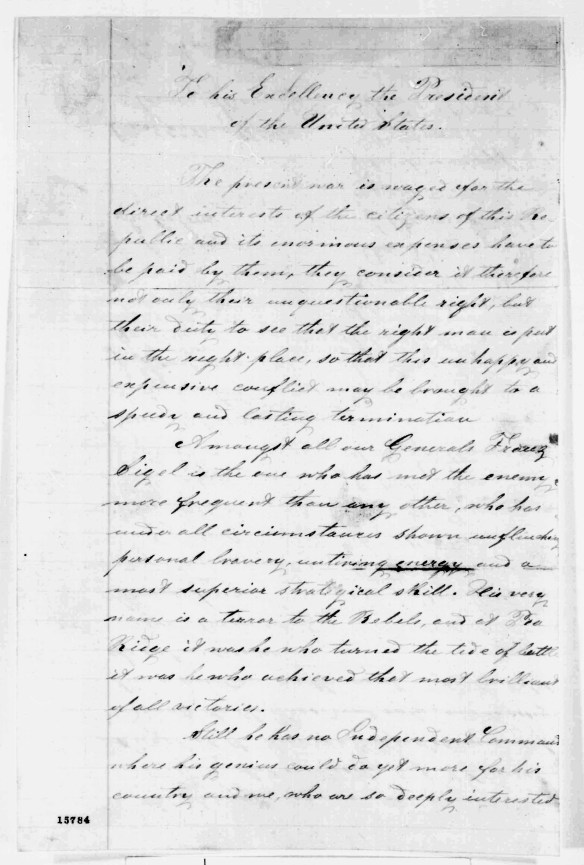 To his Excellency the President
of the United States.
The present war is waged for the
direct interests of the citizens of this Re
public and its enormous expenses have to
be paid by them, they consider it therefore
not only their unquestionable right, but
their duty to see that the right man is put
in the right place, so that this unhappy and
expensive conflict may be brought to a
speedy and lasting termination
Amongst all our Generals Franz
Sigel is the one who has met the enemy
more frequent than any other, who has
under all circumstances shown unflinching
personal bravery, untiring energy and a
most superior strategical skill. His very
name is a terror to the Rebels, and at Pea
Ridge it was he who turned the tide of battle
it was he who achieved that most brilliant
of all victories.
Still he has no Independent Command
where his genius could do yet more for his
country and we, who are so deeply interested
15784